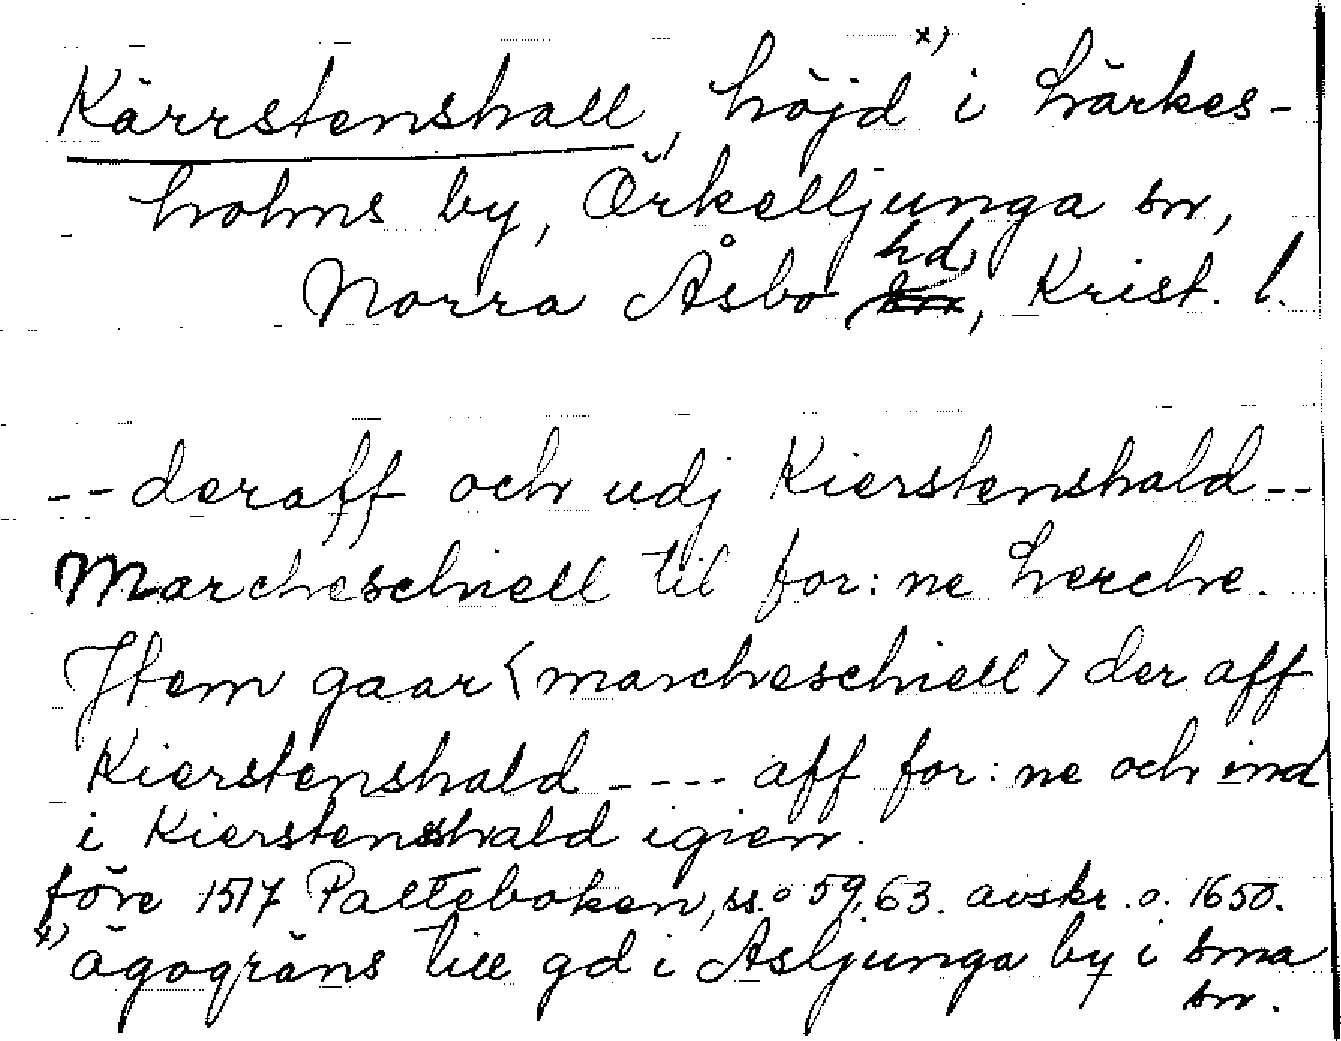 Kärrstenshall, höjd x) i härkes-
holms by, Örkelljunga sn,
Norra Åsbo hd, Krist. l.
-- deraff och udj Kierstenshald --
Marcheschiell til for:ne herche.
Item gaar <marcheschiell> der aff
Kierstenshald ---- aff for:ne och ind
i Kierstenshald igien.
före 1517 Palteboken, ss. 59, 63. avskr. o. 1650.
x) ägogräns till gd i Åsljunga by i sma
sn.